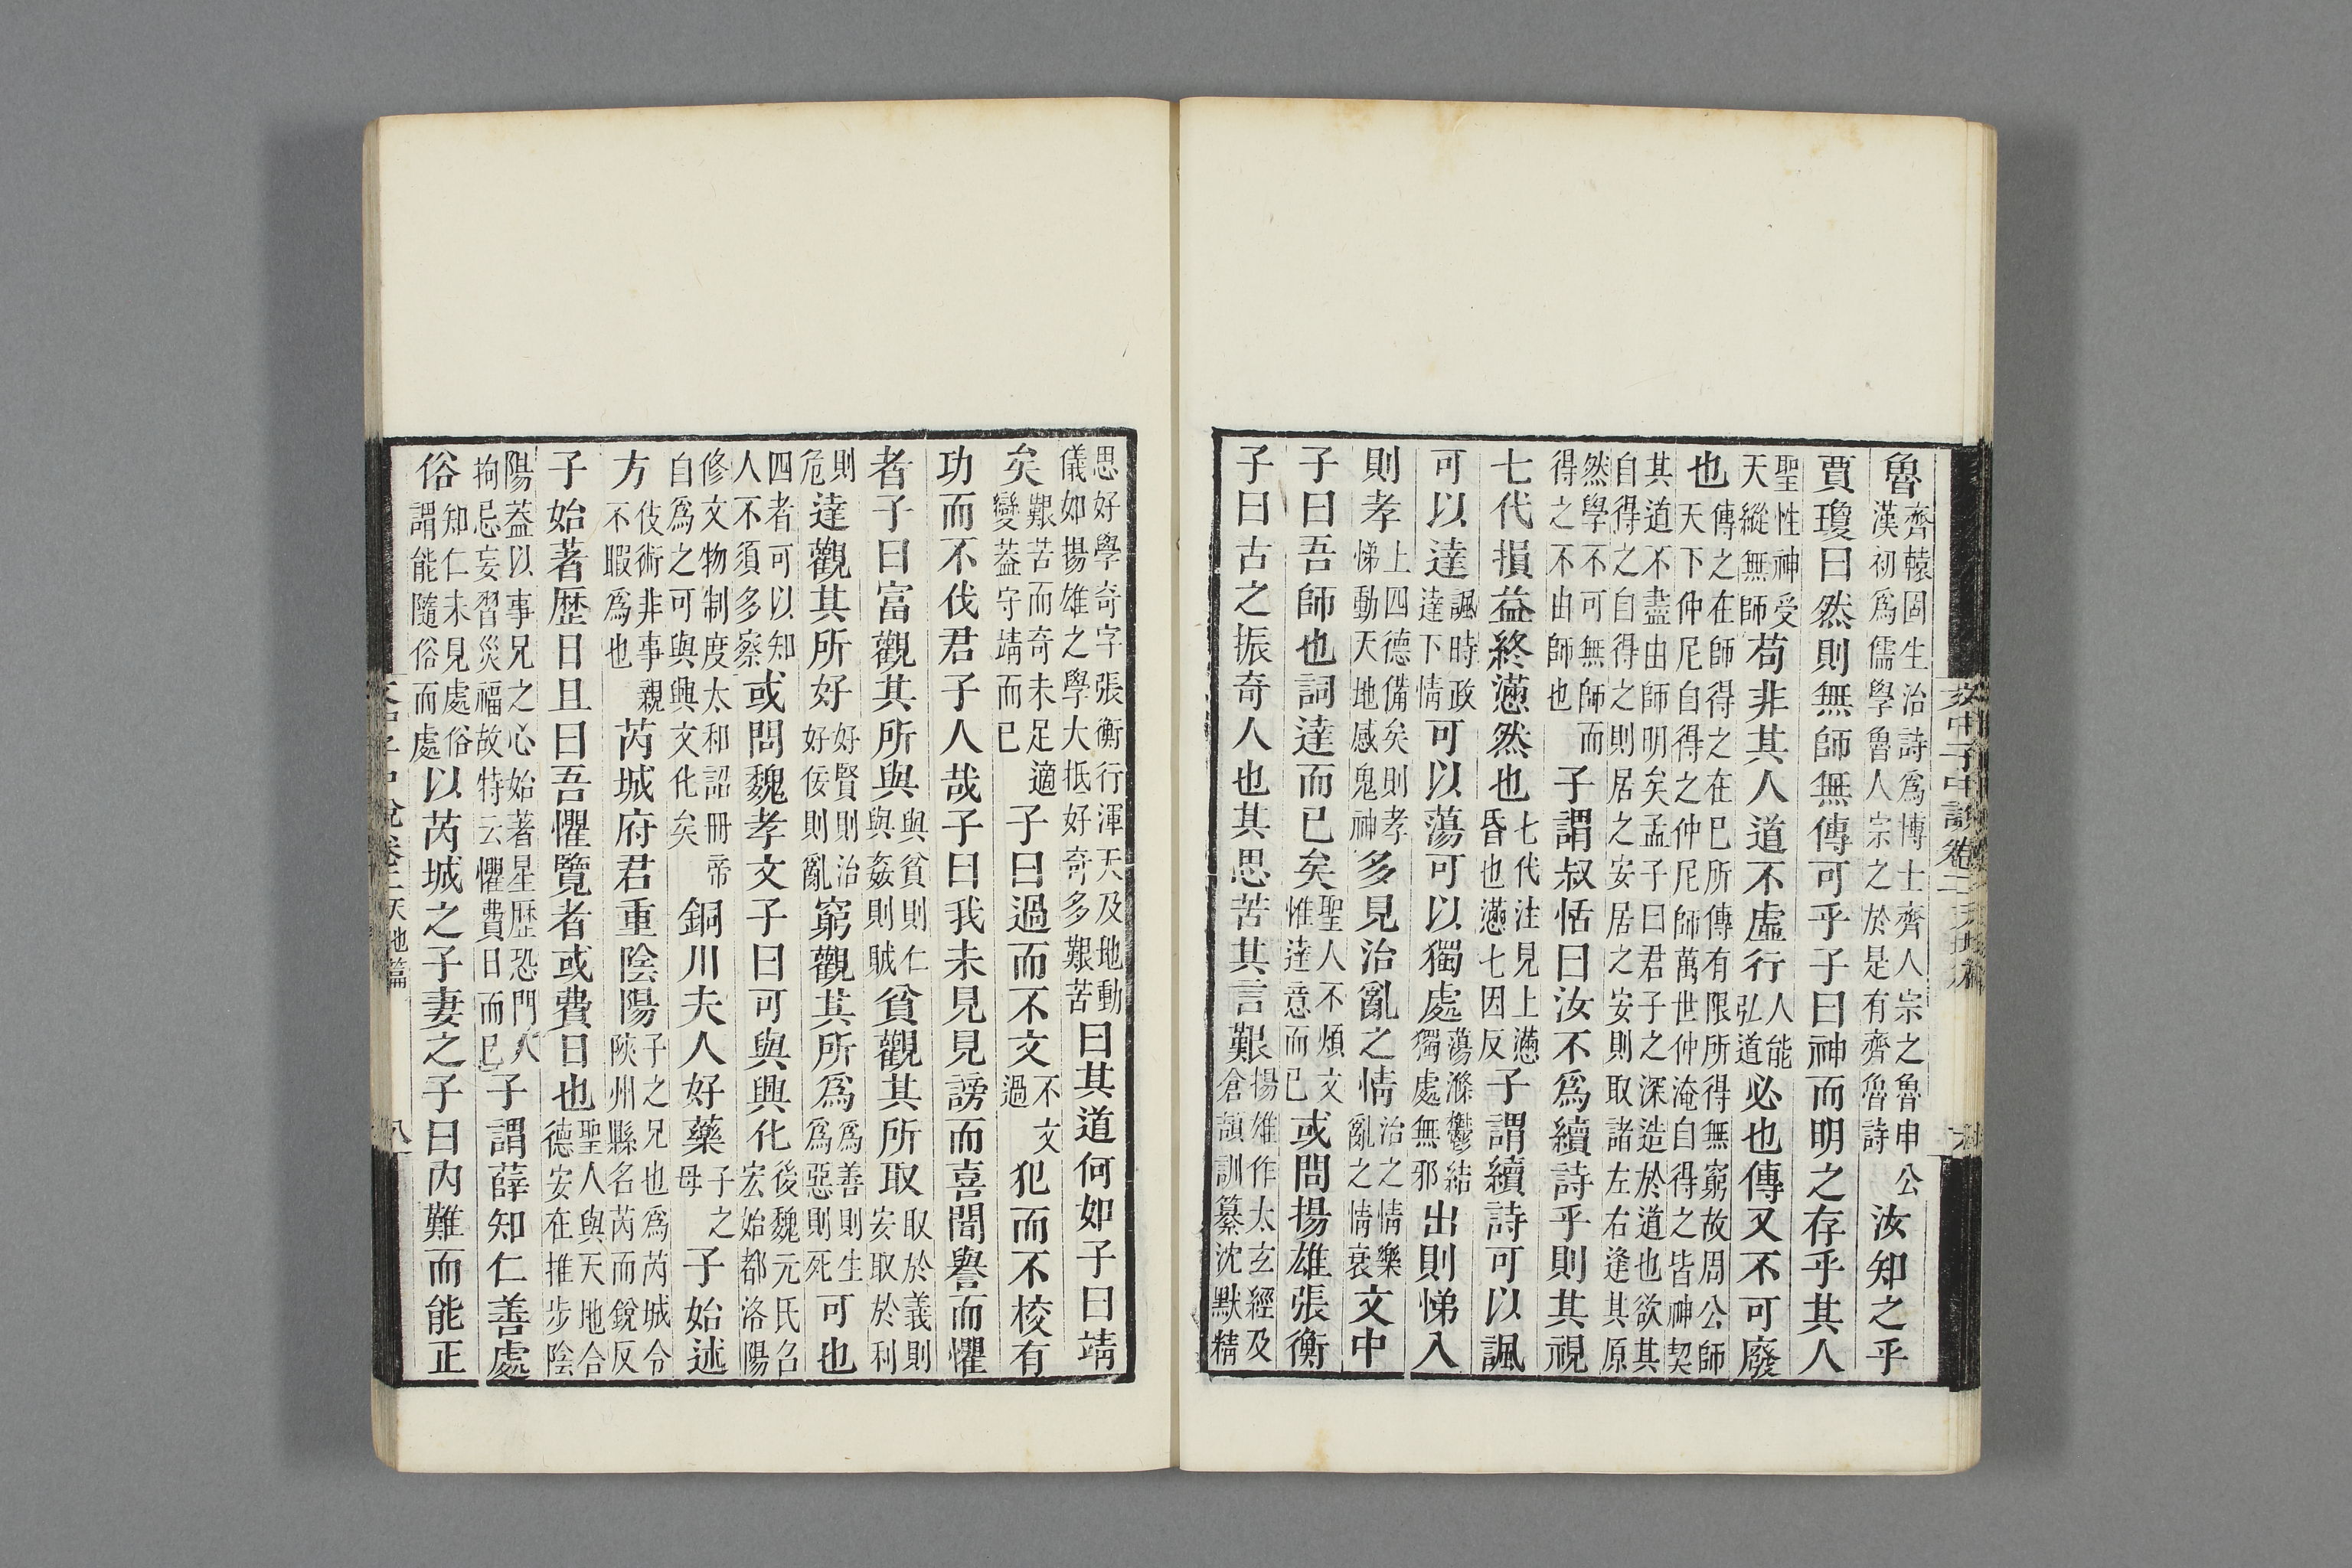 文中子中說卷二天地篇
魯齊轅固生治詩爲博士齊人宗之魯申公漢初爲儒學魯人宗之於是有齊魯詩汝知之乎
賈瓊曰然則無師無傳可乎子曰神而明之存乎其人
聖性神受天縱無師苟非其人道不虛行人能弘道必也傳又不可廢
也傳之在師得之在已所傳有限所得無窮故周公師天下仲尼自得之仲尼師萬世仲淹自得之皆神契
其道不盡由師明矣孟子曰君子之深造於道也欲其自得之自得之則居之安居之安則取諸左右逢其原
然學不可無師而得之不由師也子謂叔恬曰汝不爲續詩乎則其視
七代損益終懣然也七代注見上懣昏也懣七因反子謂續詩可以諷
可以達諷時政達下情可以蕩可以獨處蕩滌鬱結獨處無邪出則悌入
則孝上四德備矣則孝悌動天地感鬼神多見治亂之情治之情樂亂之情衰文中
子曰吾師也詞達而已矣聖人不煩文惟達意而已或問揚雄張衡
子曰古之振奇人也其思苦其言艱揚雄作太玄經及倉頡訓纂沈默精
思好學奇字張衡行渾天及地動儀如揚雄之學大抵好奇多艱苦曰其道何如子曰靖
矣艱苦而奇未足適變葢守靖而已子曰過而不文不文過犯而不校有
功而不伐君子人哉子曰我未見見謗而喜聞譽而懼
者子曰富觀其所與與貧則仁與姦則賊貧觀其所取取於義則安取於利
則危達觀其所好好賢則治好佞則亂窮觀其所爲爲善則生爲惡則死可也
四者可以知人不須多察或問魏孝文子曰可與興化後魏元氏名宏始都洛陽
修文物制度太和詔冊帝自爲之可與興文化矣銅川夫人好藥子之母子始述
方伎術非事親不暇爲也芮城府君重陰陽子之兄也爲芮城令陝州縣名芮而銳反
子始著歷日且曰吾懼覽者或費日也聖人與天地合德安在推步陰
陽葢以事兄之心始著星歷恐門人拘忌妄習災福故特云懼費日而已子謂薛知仁善處
俗知仁未見處俗謂能隨俗而處以芮城之子妻之子曰內難而能正
文中子中說卷二天地篇 八